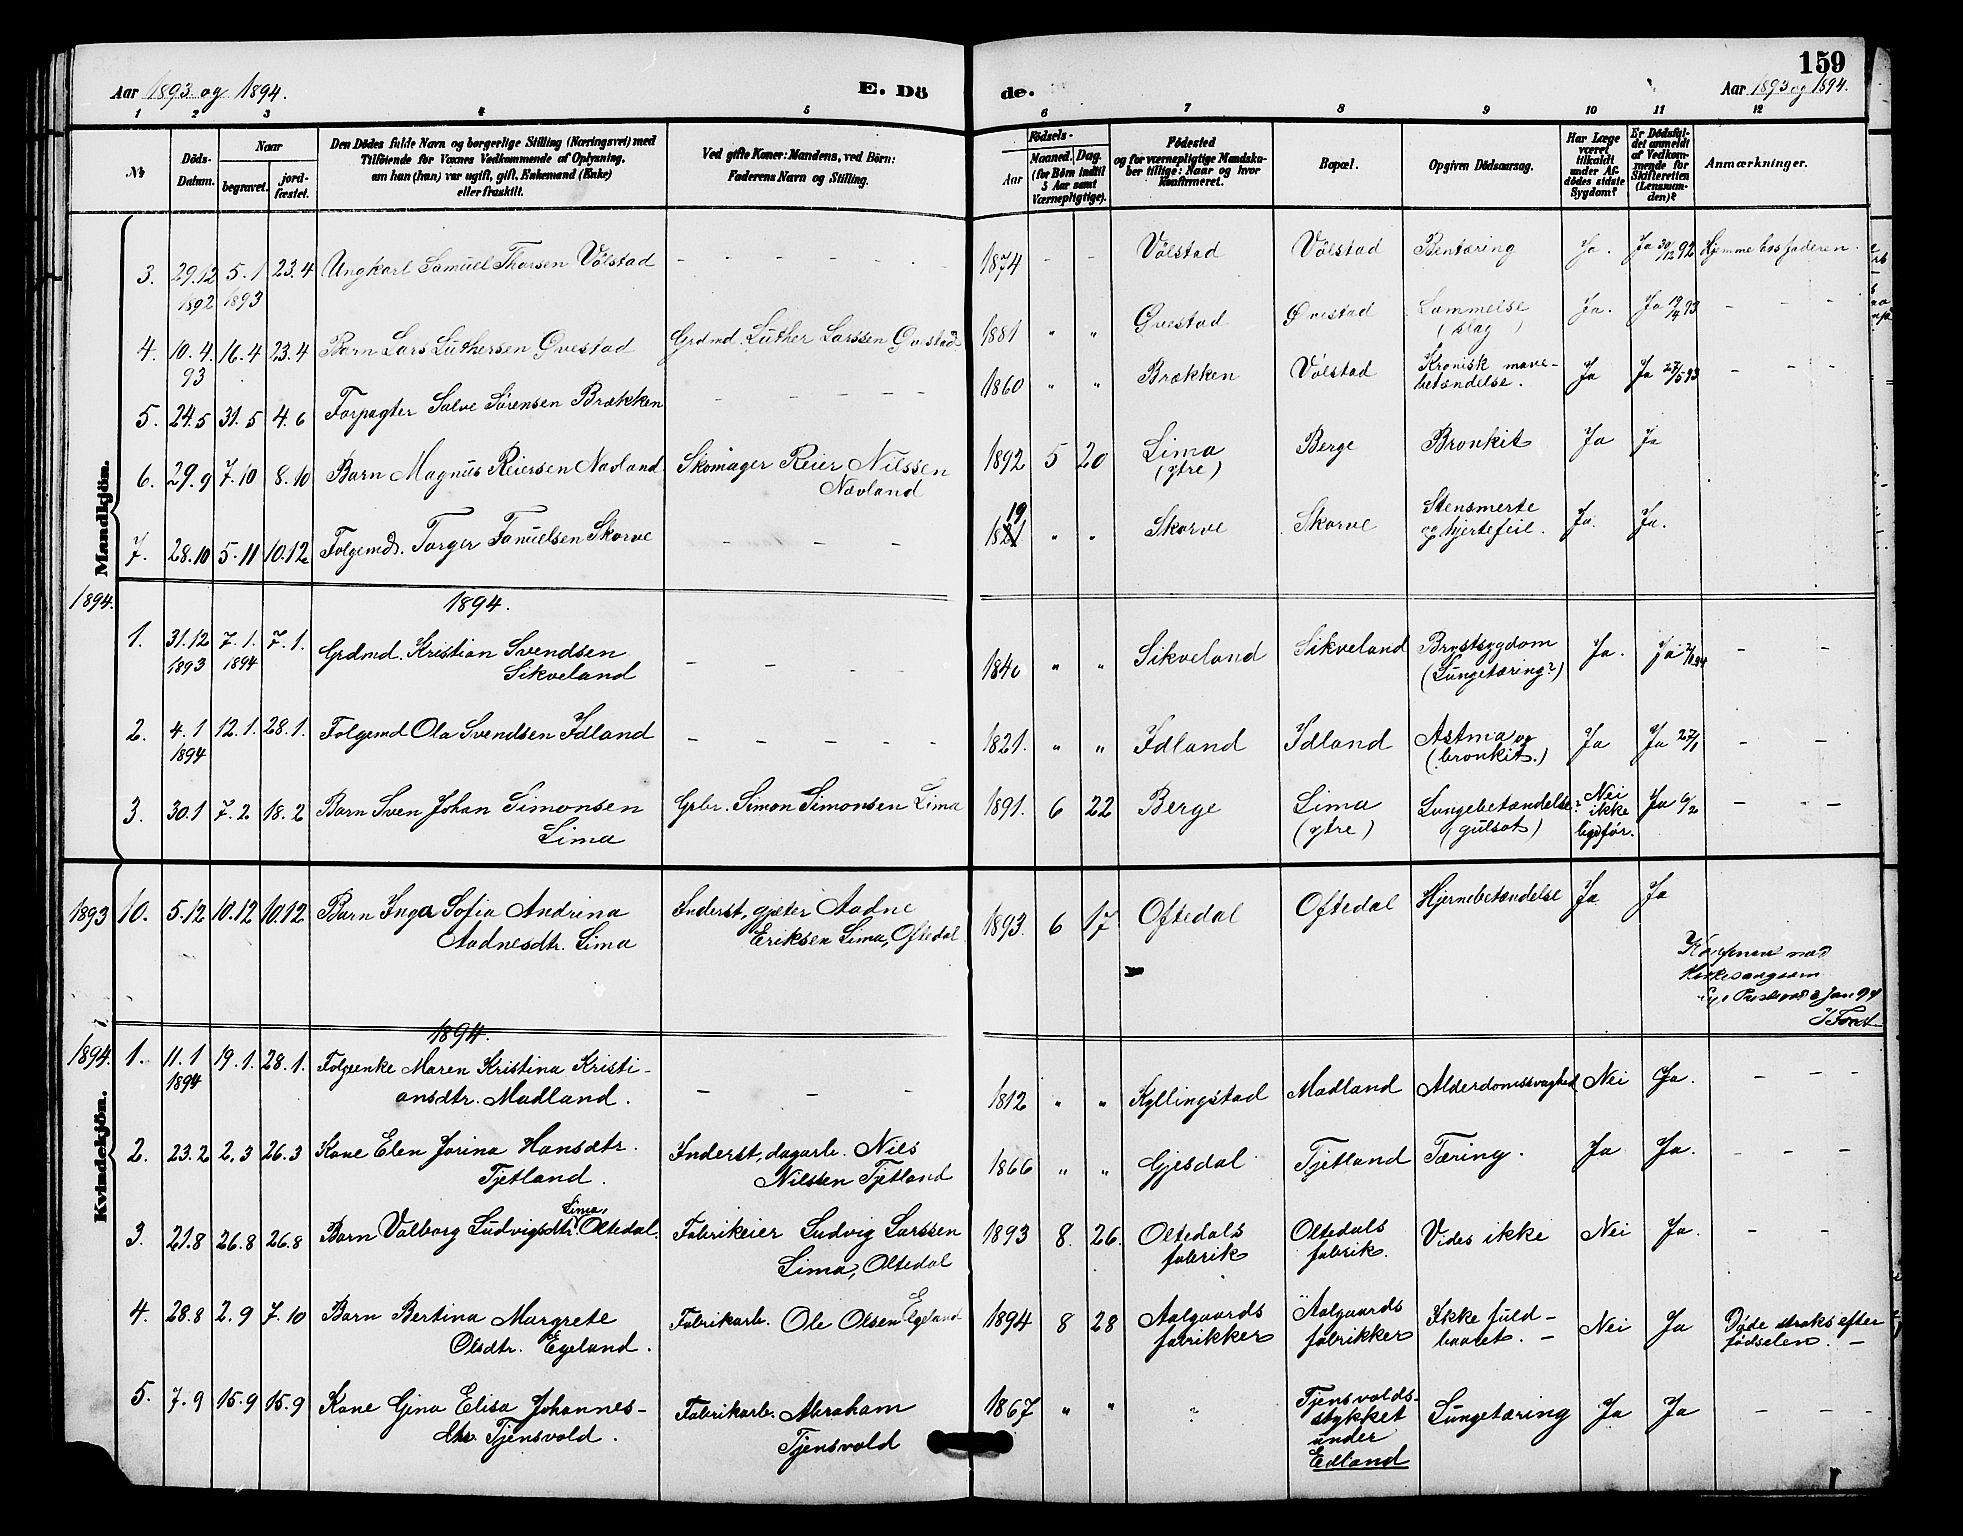 159
Aar 1893 og 1894. E. Dö de. Aar 1893 og 1894.
1 2 3 4 5 6 7 8 9 10 11 12
№
Döds-Datum.
Naar
begravet.
jord-fæstet.
Den Dödes fulde Navn og borgerlige Stilling (Næringsvei) med
Tilföiende for Voxnes Vedkommende af Oplysning,
om han (hun) var ugift, gift, Enkemand (Enke)
eller fraskilt.
Ved gifte Koner: Mandens, ved Börn:
Faderens Navn og Stilling.
Födsels-
Aar
Maaned. Dag.
(for Börn indtil
5 Aar samt
Værnepligtige).
Födested
og for værnepligtige Mandska-
ber tillige: Naar og hvor
konfirmeret.
Bopæl.
Opgiven Dödsaarsag.
Har Læge
været
tilkaldt
under Af-
dödes sidste
Sygdom?
Er Dödsfal-
det anmeldt
af Vedkom-
mende for
Skifteretten
(Lensman-
den)?
Anmærkninger.
Mandkjön.
3. 29.12 1892 5.1 1893 23.4 Ungkarl Samuel Thorsen Völstad - - - 1874 - - Völstad Völstad Bentæring Ja. Ja 30/12 92 Hjemme hos faderen.
4. 10.4. 93 16.4 23.4 Barn Lars Luthersen Qvestad Grdmd. Luther Larssen Qvestad 1881 " " Qvestad Qvestad Lammelse (slag) Ja. Ja 19/4 93 - - -
5. 24.5 31.5 4.6 Forpagter Salve Sörensen Brækken - - - 1860 " " Brækken Völstad Kronisk mave-
betændelse. Ja Ja 27/5 93 - - -
6. 29.9 7.10 8.10 Barn Magnus Reiersen Nævland Skomager Reier Nilssen
Nævland 1892 5 20 Lima
(ytre) Berge Bronkit Ja Ja
7. 28.10 5.11 10.12 Folgemd. Torger Tanielsen Skorve - - - 19
1821 " " Skorve Skorve Stensmerte
og hjertefeil. Ja. Ja.
1894. 1894.
1. 31.12 1893 7.1. 1894 7.1. Grdmd. Kristian Svendsen
Sikveland - - - 1840 " " Sikveland Sikveland Brystsygdom
(Lungetæring?) Ja. Ja - -
2. 4.1 1894 12.1. 28.1. Folgemd Ola Svendsen Idland - - - 1821. " " Idland Idland Astma og
(bronkit.) Ja Ja 27/1 - -
3. 30.1 7.2 18.2 Barn Sven Johan Simonsen
Lima Grbr. Simon Simonsen Lima 1891. 6 22 Berge Lima
(ytre) Lungebetændelse?
(gulsot) Nei
ikke
ligeför. Ja 6/2 - -
1893 10. 5.12 10.12 10.12 Barn Inga Sofia Andrina
Aadnesdtr. Lima Inderst, gjæter Aadne
Eriksen Lima, Oftedal 1893. 6 17 Oftedal Oftedal Hjernebetændelse Ja Ja
Jan 94
1894.
Kvindekjön.
1894. 1. 11.1 1894 19.1. 28.1. Folgeenke Maren Kristina Kristi-
ansdtr. Madland. - - - 1812 " " Kyllingstad Madland Alderdomssvaghed Nei Ja. - - -
2. 23.2 2.3 26.3 Kone Elen Jorina Hansdtr.
Tjetland. Inderst, dagarb. Nils
Nilssen Tjetland 1866 " " Gjesdal Tjetland Tæring. Ja Ja. - - -
3. 21.8 26.8 26.8 Barn Valborg Ludvigsdtr. Lima, Oltedal. Fabrikeier Ludvig Larssen
Lima, Oltedal 1893 8. 26. Oltedals
fabrik Oltedals
fabrik. Vides ikke Nei Ja. - -
4. 28.8 2.9 7.10 Barn Bertina Margrete
Olsdtr. Egeland. Fabrikarb. Ole Olsen Egeland 1894 8 28 Aalgaards
fabrikker Aalgaards
fabrikker Ikke fuld-
baaret. - Nei Ja Döde straks efter
födselen. -
5. 7.9 15.9 15.9 Kone Gina Elisa Johannes-
dtr Tjensvold. Fabrikarb. Abraham
Tjensvold 1867 " " " Tjensvolds-
stykket
under
Edland Lungetæring Ja Ja - - -